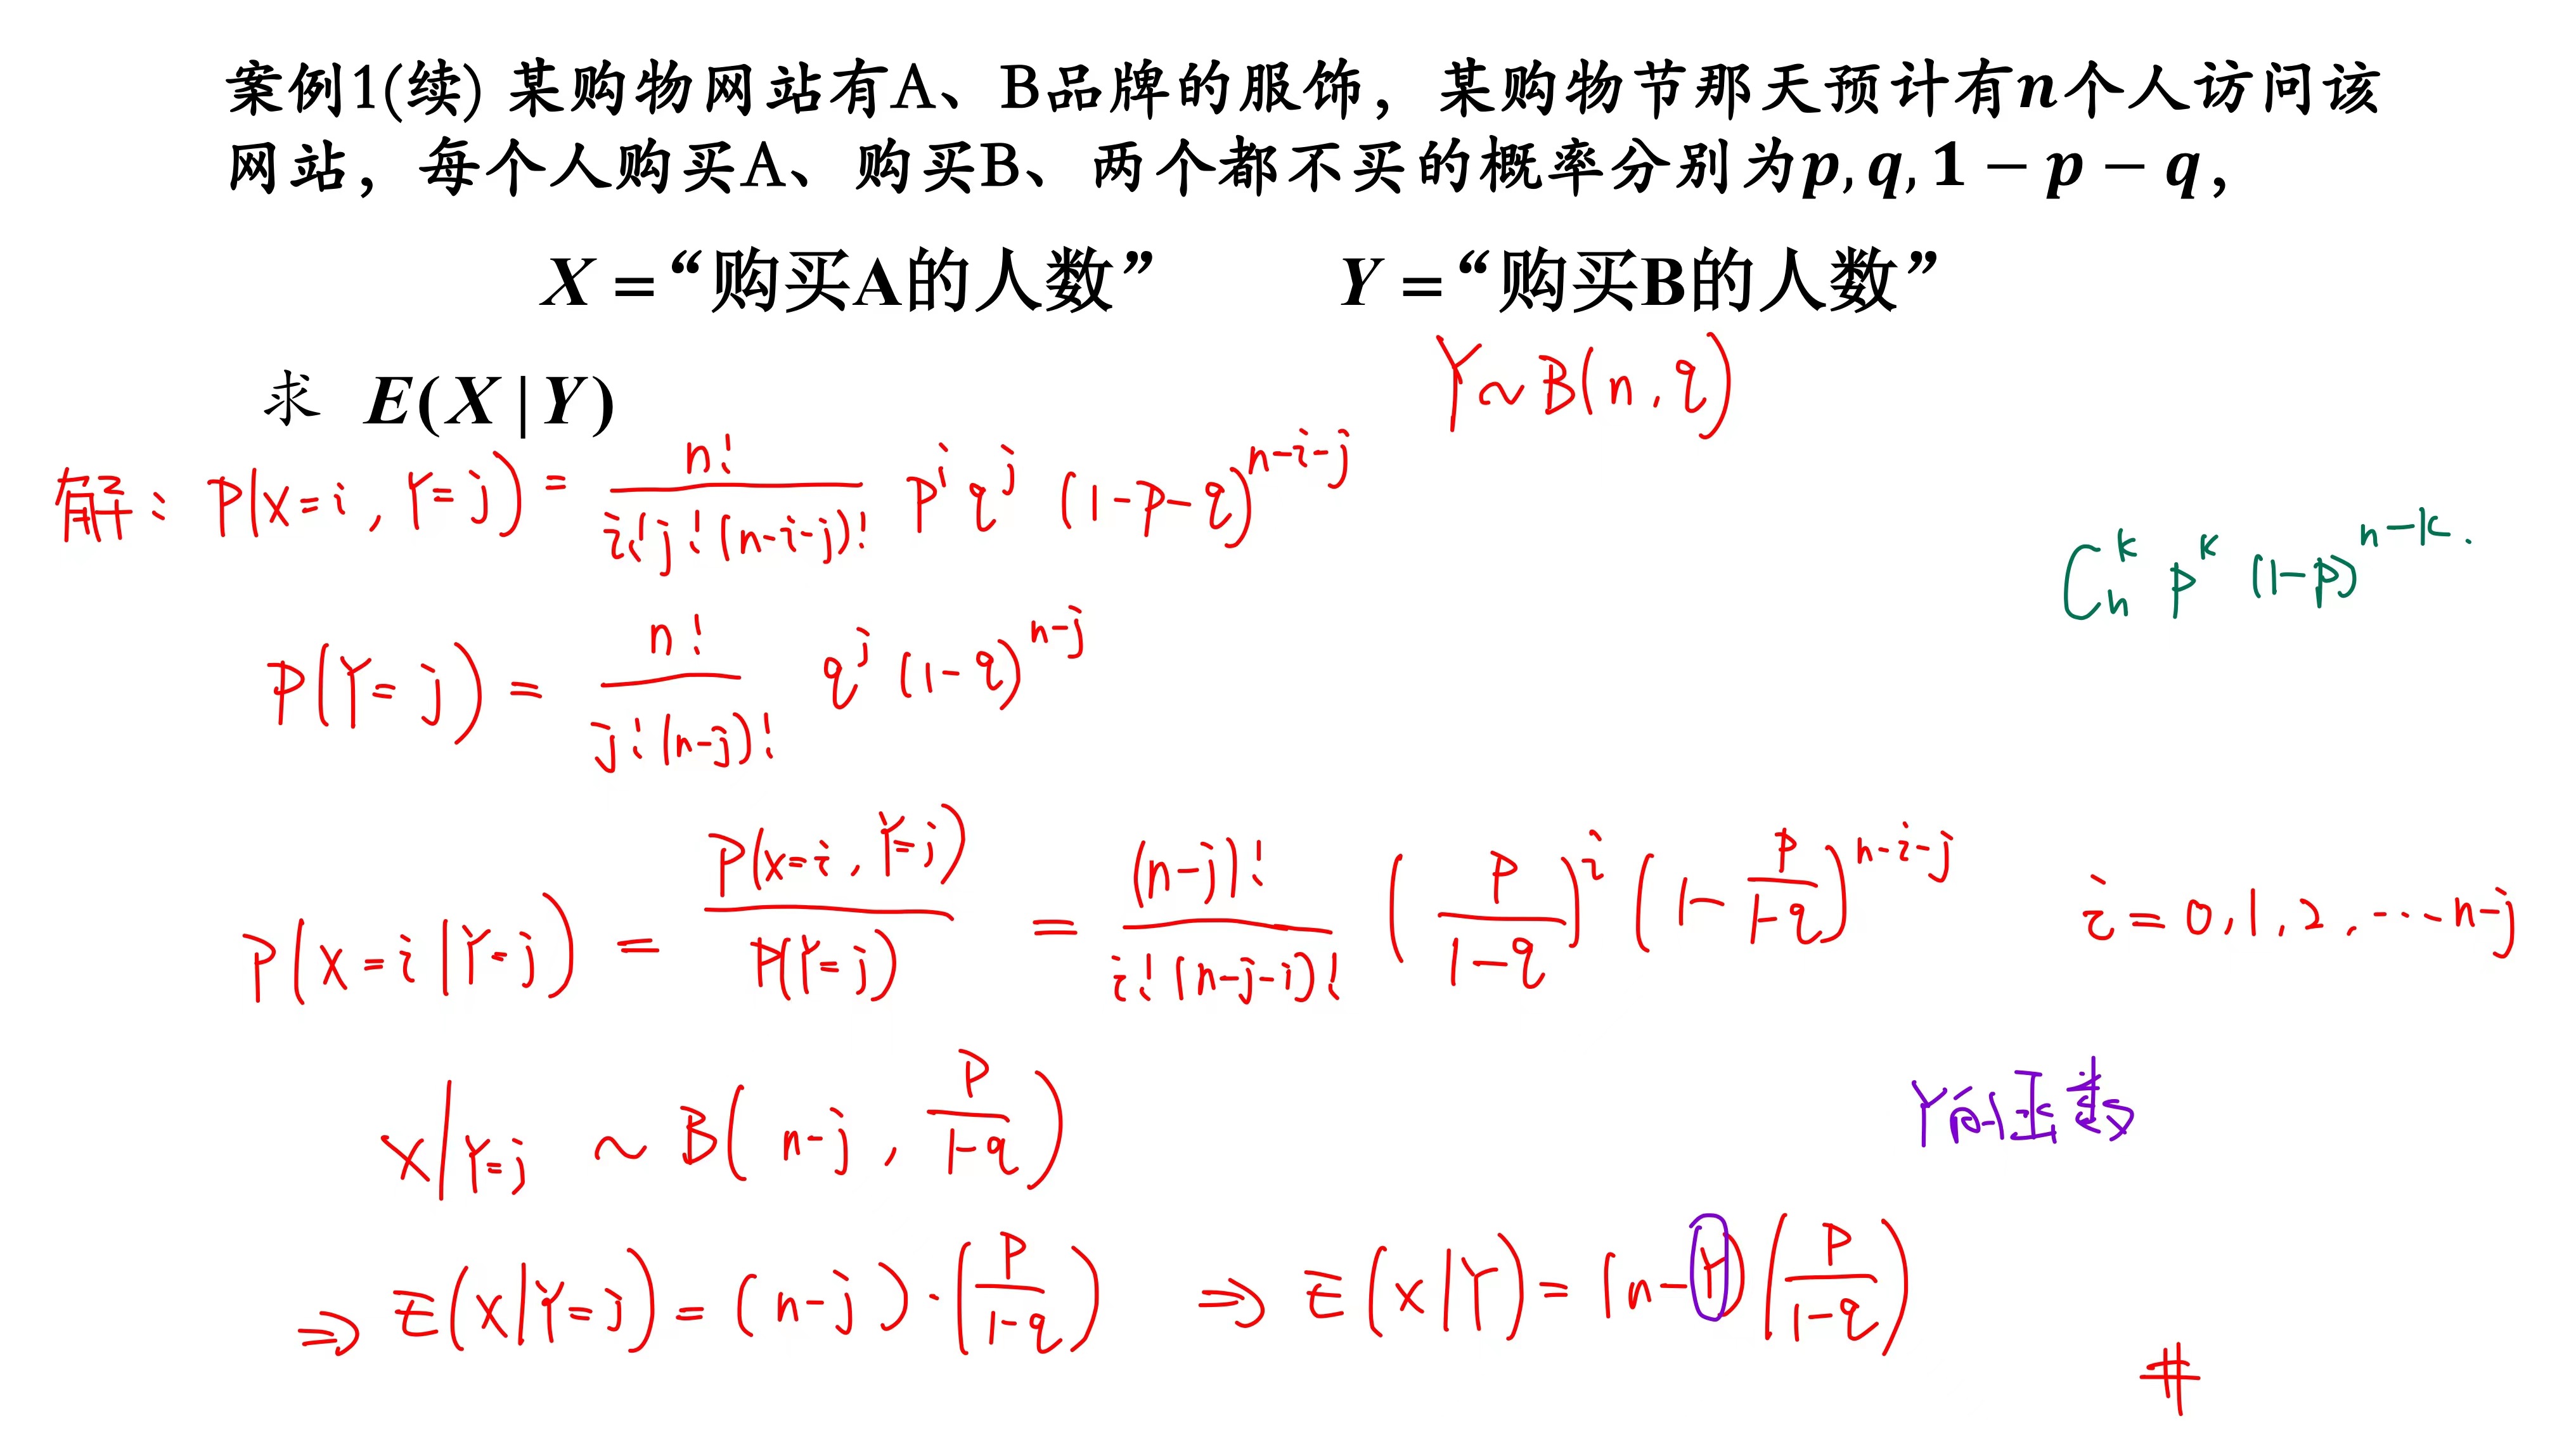 案例1(续) 某购物网站有A、B品牌的服饰，某购物节那天预计有n个人访问该
网站，每个人购买A、购买B、两个都不买的概率分别为p, q, 1 − p − q，
X =“购买A的人数” Y =“购买B的人数”
Y~B(n,q)
求 E(X|Y)
解: P(X=i, Y=j) = n!/(i!j!(n-i-j)!) p^i q^j (1-p-q)^(n-i-j)
C_n^k p^k (1-p)^(n-k).
P(Y=j) = n!/(j!(n-j)!) q^j (1-q)^(n-j)
P(X=i|Y=j) = P(X=i, Y=j)/P(Y=j) = (n-j)!/(i!(n-j-i)!) (p/(1-q))^i (1-p/(1-q))^(n-i-j) i=0,1,2,...n-j
X|Y=j ~ B(n-j, p/(1-q))
Y的函数
⇒ E(X|Y=j) = (n-j)·(p/(1-q)) ⇒ E(X|Y) = (n-Y)(p/(1-q))
#